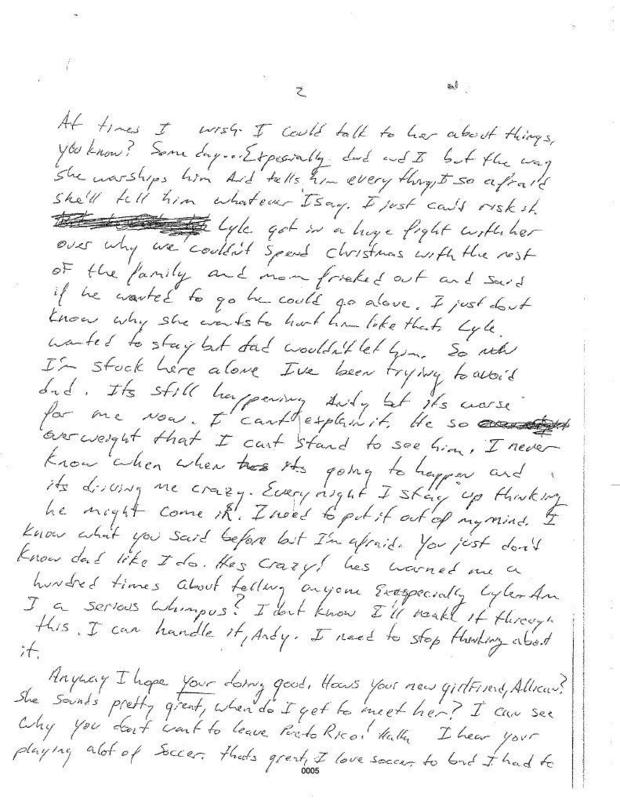 2
At times I wish I could talk to her about things,
you know? Some day... Expecially dad and I but the way
she worships him and tells him every thing, I so afraid
she'll tell him whatever I say. I just can't risk it.
Lyle got in a huge fight with her
over why we couldn't spend christmas with the rest
of the family and mom frieked out and said
if he wanted to go he could go alone. I just dont
know why she wants to hurt him like that. Lyle
wanted to stay but dad wouldn't let him. So now
I'm stuck here alone I've been trying to avoid
dad. Its still happening Andy but its worse
for me now. I cant explain it. He so
overweight that I cant stand to see him. I never
know when when its going to happen and
its driving me crazy. Every night I stay up thinking
he might come in. I need to put it out of my mind. I
know what you said before but I'm afraid. You just don't
know dad like I do. Hes crazy! hes warned me a
hundred times about telling anyone Exespecially Lyle. Am
I a serious whimpus? I dont know I'll make it through
this. I can handle it, Andy. I need to stop thinking about
it.
Anyway I hope your doing good. Hows your new girlfriend, Allican?
She sounds pretty great, when do I get to meet her? I can see
why you dont want to leave Puerto Rico! HaHa I hear your
playing alot of Soccer. thats great, I love soccer. to bad I had to
0005